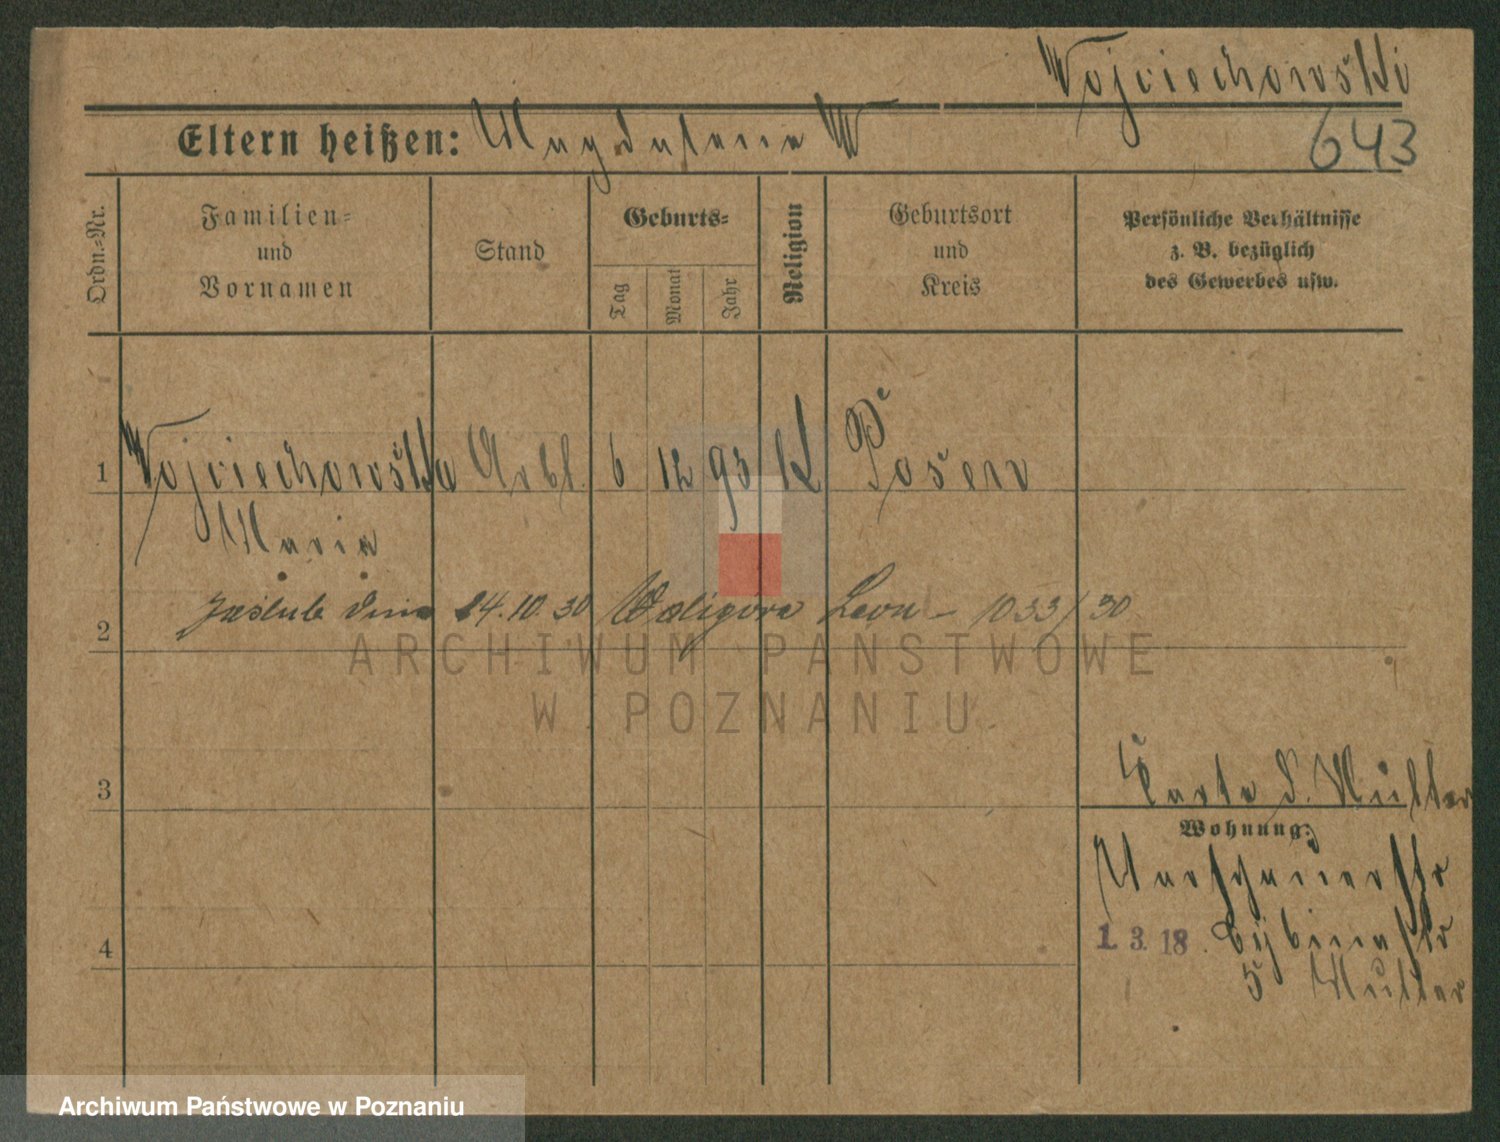 Wojciechowski
Eltern heißen: Magdalena W
643
Ordn.-Nr.
Familien- und Vornamen
Stand
Geburts-
Tag
Monat
Jahr
Religion
Geburtsort und Kreis
Persönliche Verhältnisse z. B. bezüglich des Gewerbes usw.
1 Wojciechowska Arbt. 6 12 93 K Posen
Maria
2 Zaślub. dnia 14.10.30 Waligóra Leon - 1033/30
ARCHIWUM PAŃSTWOWE
W POZNANIU
3
Karte d. Mutter
Wohnung:
Warschauerstr
4
1. 3. 18.
5 Mutter
Archiwum Państwowe w Poznaniu